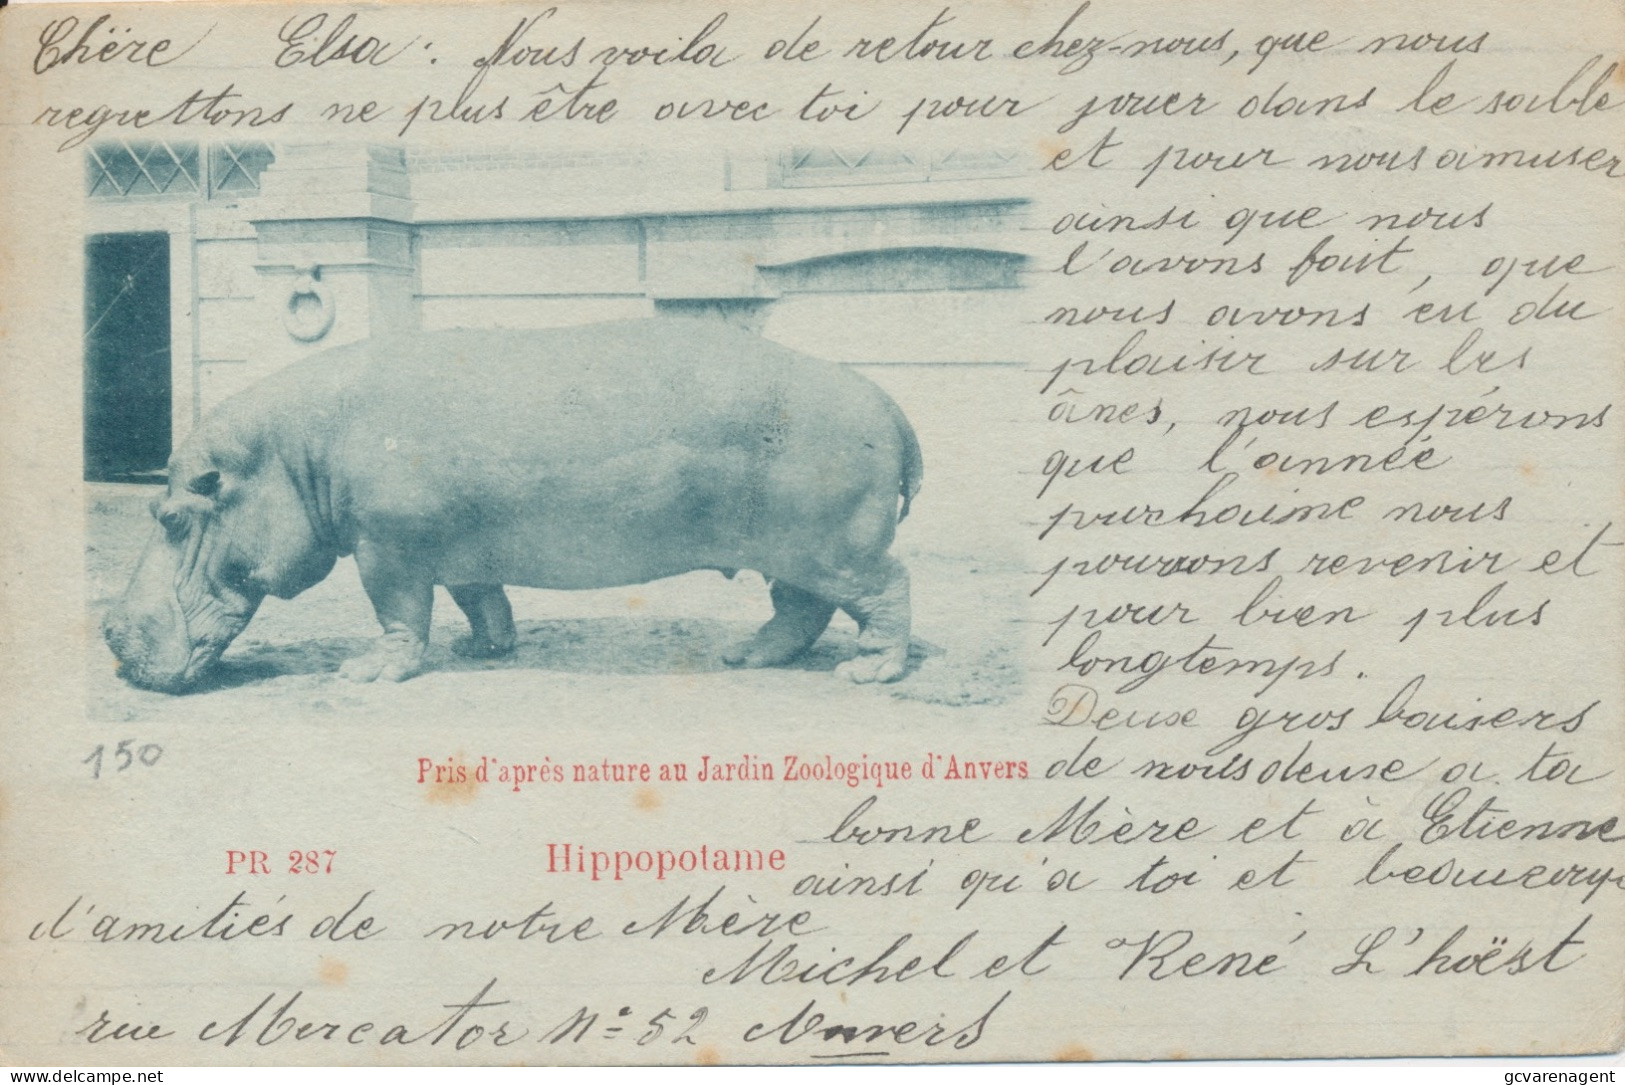 Chëre Elsa : Nous voila de retour chez-nous, que nous
regrettons ne plus être avec toi pour jouer dans le sable
et pour nous amuser
ainsi que nous
l'avons fait, que
nous avons eu du
plaisir sur les
ânes, nous espérons
que l'année
prochaine nous
pourrons revenir et
pour bien plus
longtemps.
Deux gros baisers
de nous deux a ta
bonne Mère et à Etienne
ainsi qu'a toi et beaucoup
d'amitiés de notre Mère
Michel et René L'hoëst
rue Mercator No 52 Anvers
150
Pris d'après nature au Jardin Zoologique d'Anvers
PR 287 Hippopotame
delcampe.net
gcvarenagent